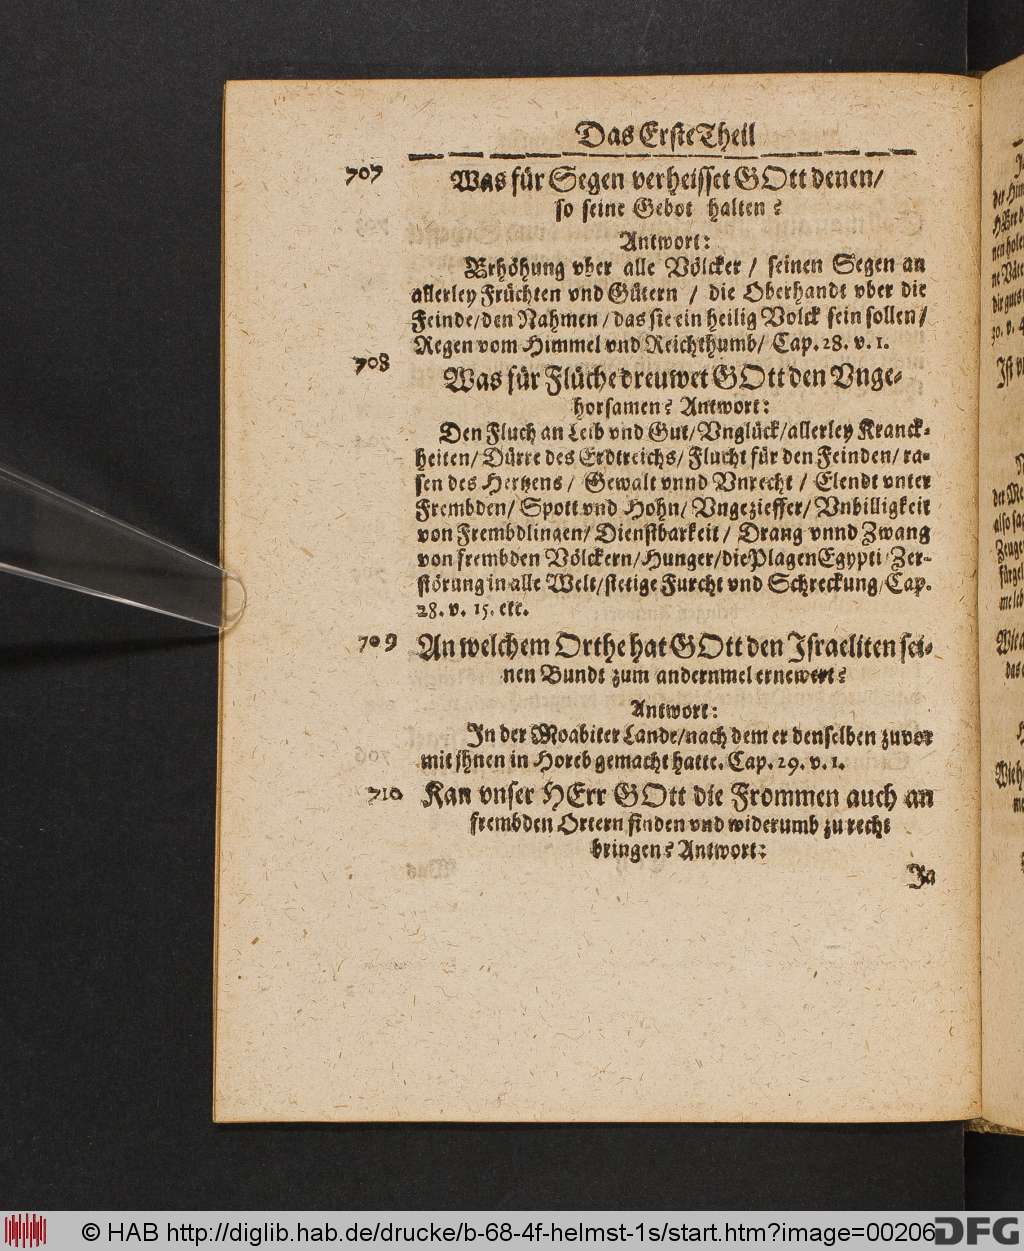 Das Erste Theil
707 Was für Segen verheisset GOtt denen/
so seine Gebot halten?
Antwort:
Erhöhung vber alle Völcker / seinen Segen an
allerley Früchten vnd Gütern / die Oberhandt vber die
Feinde/den Nahmen/das sie ein heilig Volck sein sollen/
Regen vom Himmel vnd Reichthumb/ Cap. 28. v. 1.
708 Was für Flüche dreuwet GOtt den Vnge-
horsamen? Antwort:
Den Fluch an Leib vnd Gut/Vnglück/allerley Kranck-
heiten/Dürre des Erdtreichs/Flucht für den Feinden/ra-
sen des Hertzens/ Gewalt vnnd Vnrecht / Elendt vnter
Frembden/Spott vnd Hohn/Vngezieffer/Vnbilligkeit
von Frembdlingen/Dienstbarkeit/ Drang vnnd Zwang
von frembden Völckern/Hunger/die Plagen Egypti/Zer-
störung in alle Welt/stetige Furcht vnd Schreckung/Cap.
28. v. 15. etc.
709 An welchem Orthe hat GOtt den Israeliten sei-
nen Bundt zum andernmel ernewert?
Antwort:
In der Moabiter Lande/nach dem er denselben zuvor
mit ihnen in Horeb gemacht hatte. Cap. 29. v. 1.
710 Kan vnser HErr GOtt die Frommen auch an
frembden Ortern finden vnd widerumb zu recht
bringen? Antwort:
Ja
© HAB http://diglib.hab.de/drucke/b-68-4f-helmst-1s/start.htm?image=00206
DFG